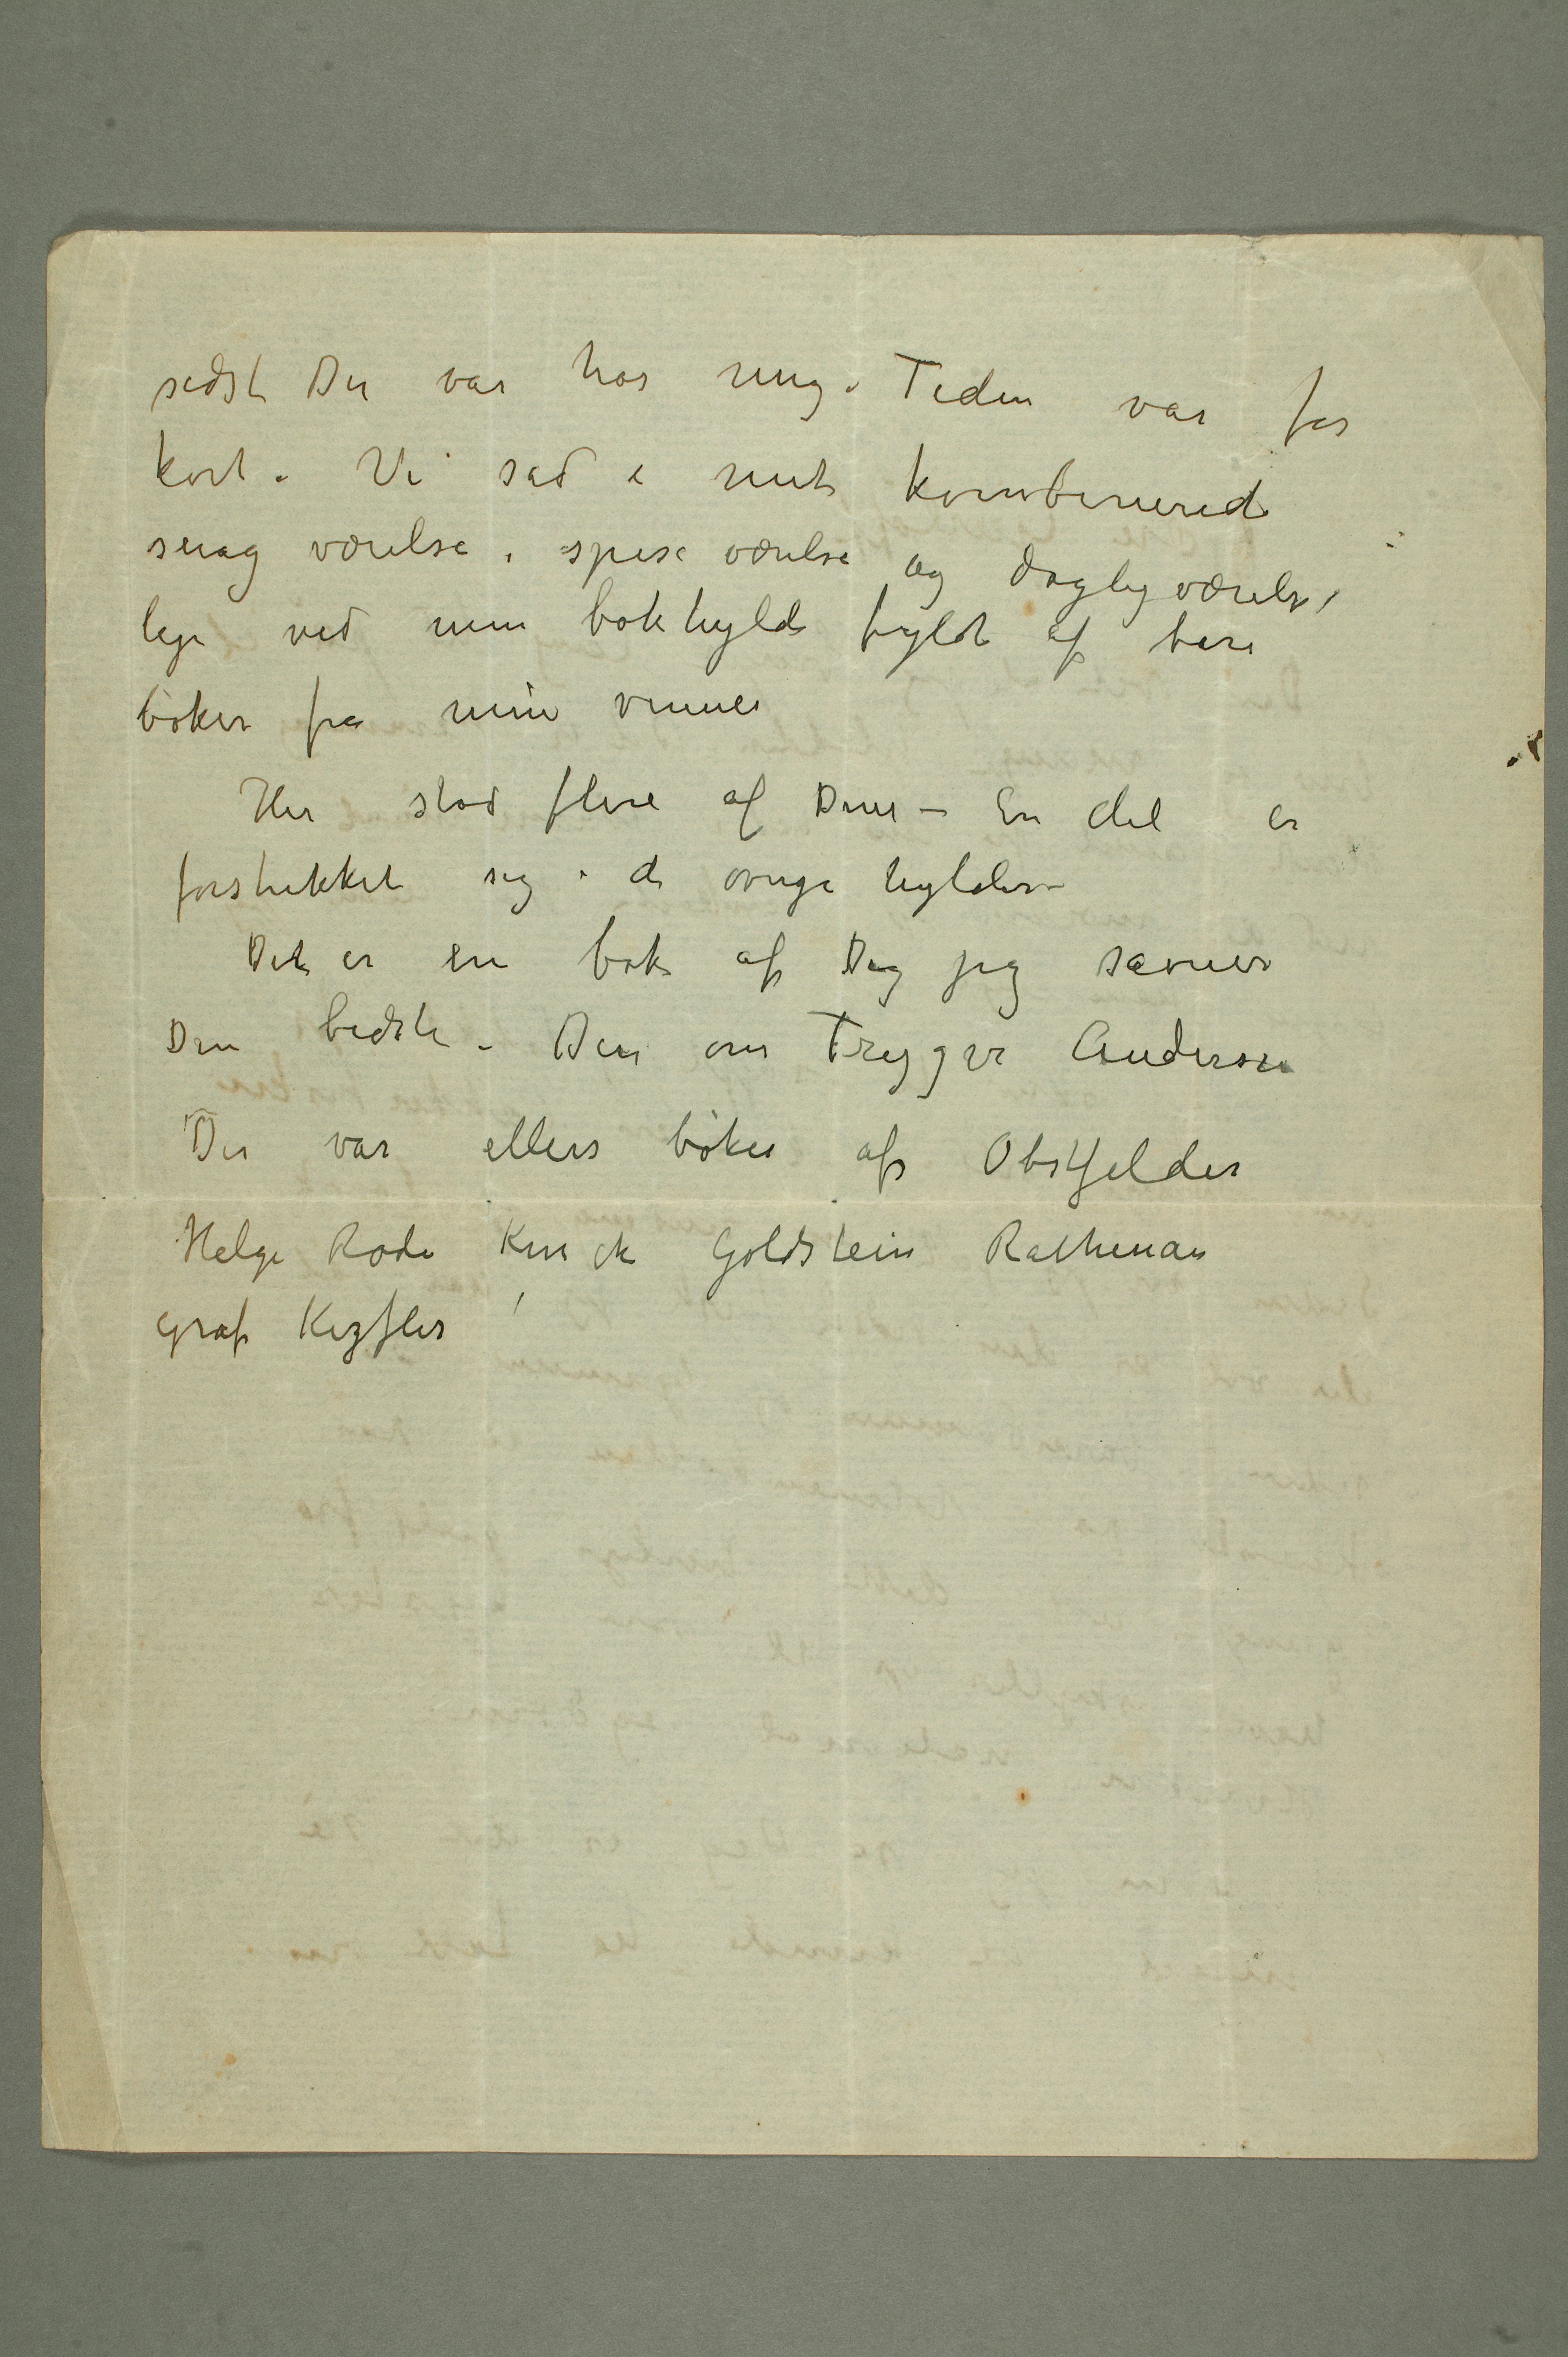 sidst Du var hos mig. Tiden var for
kort. Vi sad i mit kombinered
smag værelse, spise værelse og dagligværelse,
lige ved min bokhylde fyldt af bare
bøker fra mine venner
Her stod flere af Dine – En del er
forstukket sig i de øvrige hylder –
Det er en bok af Dig jeg savner
Din bedste – Den om Trygve Andersen
Der var ellers bøker af Obstfelder
Helge Rode Kinck Goldstein Rathenau
Graf Kezfler